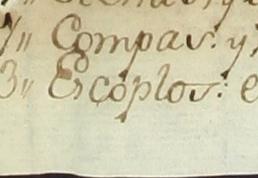 7" Compas: y
3" Escoplos: e